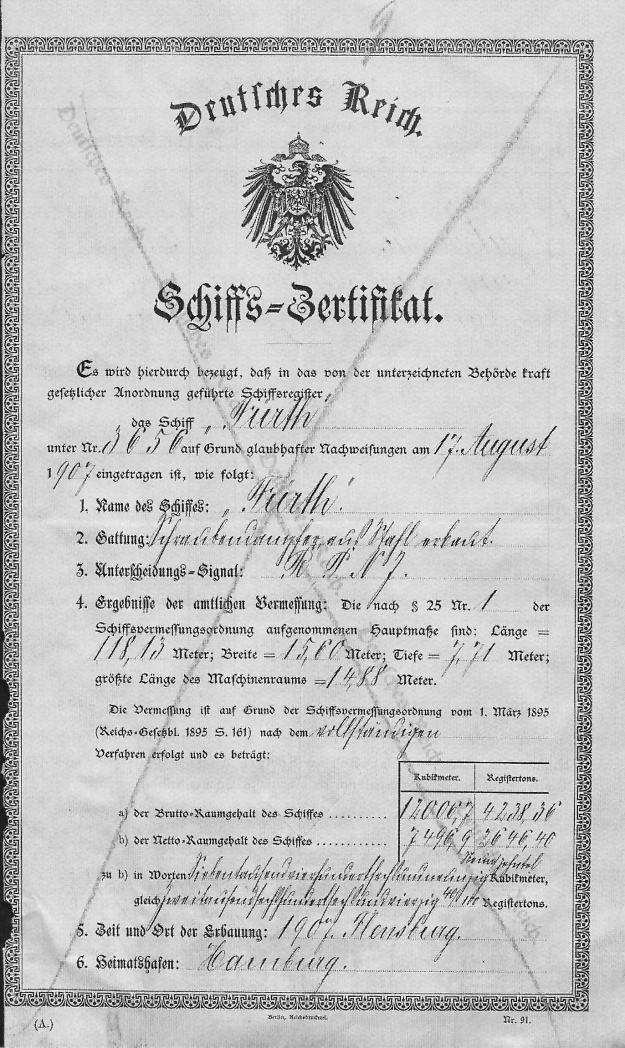 Deutsches Reich.
Schiffs-Zertifikat.
Es wird hierdurch bezeugt, daß in das von der unterzeichneten Behörde kraft
gesetzlicher Anordnung geführte Schiffsregister
das Schiff „Fürth“
unter Nr. 3656 auf Grund glaubhafter Nachweisungen am 17. August
1907 eingetragen ist, wie folgt:
1. Name des Schiffes: „Fürth“.
2. Gattung: Schraubendampfer aus Stahl erbaut.
3. Unterscheidungs-Signal:
4. Ergebnisse der amtlichen Vermessung: Die nach § 25 Nr. 1 der
Schiffsvermessungsordnung aufgenommenen Hauptmaße sind: Länge =
118,13 Meter; Breite = 15,60 Meter; Tiefe = 7,71 Meter;
größte Länge des Maschinenraums = 14,88 Meter.
Die Vermessung ist auf Grund der Schiffsvermessungsordnung vom 1. März 1895
(Reichs-Gesetzbl. 1895 S. 161) nach dem vollständigen
Verfahren erfolgt und es beträgt:
Kubikmeter. Registertons.
a) der Brutto-Raumgehalt des Schiffes .......... 12006,7 4238,36
b) der Netto-Raumgehalt des Schiffes .......... 7496,9 2646,40
neun zehntel
zu b) in Worten Siebentausendvierhundertsechsundneunzig Kubikmeter,
gleich zweitausendsechshundertsechsundvierzig 40/100 Registertons.
5. Zeit und Ort der Erbauung: 1907. Flensburg.
6. Heimatshafen: Hamburg.
(A.)
Berlin, Reichsdruckerei.
Nr. 91.